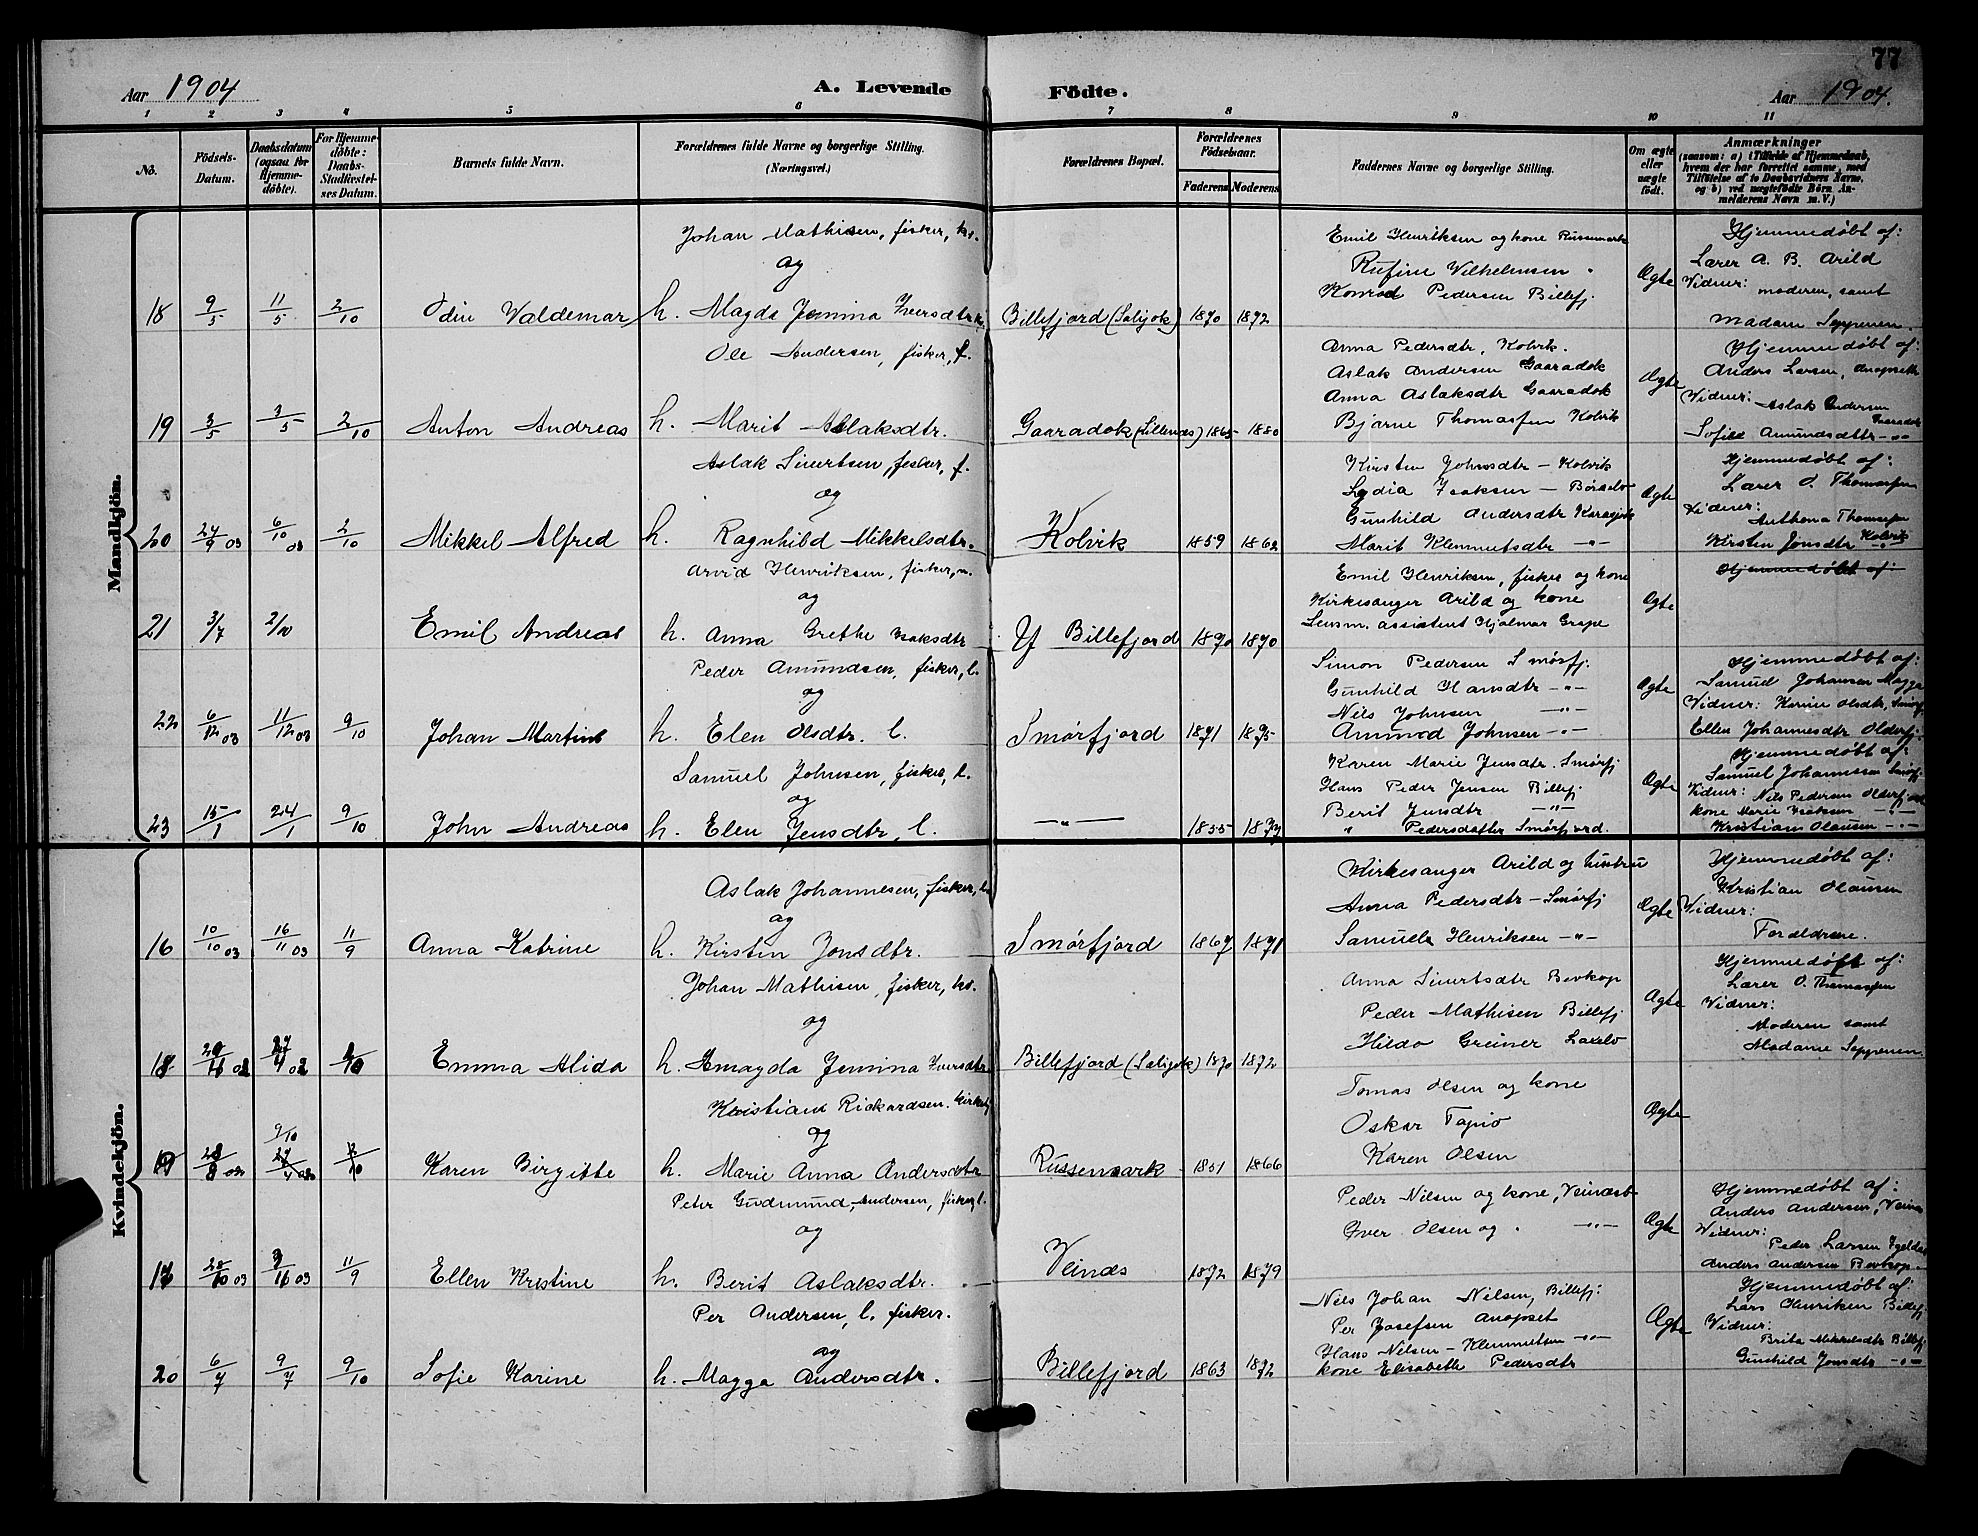 77
Aar 1904
A. Levende
Födte.
Aar 1904.
1 2 3 4 5 6 7 8 9 10 11
No.
Födsels-Datum.
Daabsdatum (ogsaa for Hjemme-döbte).
For Hjemme-döbte: Daabs-Stadfæstel-ses Datum.
Barnets fulde Navn.
Forældrenes fulde Navne og borgerlige Stilling. (Næringsvei.)
Forældrenes Bopæl.
Forældrenes Födselsaar.
Faderens Moderens
Faddernes Navne og borgerlige Stilling.
Om ægte eller uægte födt.
Anmærkninger
(saasom: a) i Tilfælde af Hjemmedaab, hvem der har forrettet samme, med Tilföielse af to Daabsvidners Navne, og b) ved uægtefödte Börn An-melderens Navn m. V.)
Mandkjön.
Johan Mathisen, fisker, kv.
og
18 9/5 11/5 2/10 Odin Waldemar h. Magda Jemina Iversdtr Billefjord (Saligok) 1870 1872
Emil Henriksen og kone Russemark
Rufine Wilhelmsen "
Konrad Pedersen Billefj.
Ægte
Hjemmedøbt af:
Lærer A. B. Arild
Vidner: moderen, samt
madam Seppenen.
Ole Andersen, fisker, f.
19 3/5 3/5 2/10 Anton Andreas h. Marit Aslaksdtr. Gaaradok 1865 1880
Anna Pedersdtr, Kolvik.
Aslak Andersen Gaaradok
Anna Aslaksdtr Gaaradok
Bjarne Thomassen Kolvik
Ægte
Hjemmedøbt af:
Anders Larsen,
Vidner: Aslak Andersen
Gaaradok
Sofie Amundsdtr -"-
Aslak Sivertsen, fisker, f.
og
20 24/9 03 6/10 03 2/10 Mikkel Alfred h. Ragnhild Mikkelsdtr. Kolvik 1859 1862
Kirsten Johnsdtr - Kolvik
Lydia Isaksen - Børselv
Gunhild Andersdtr Karasjok
Marit Klemmetsdtr -"-
Ægte
Hjemmedøbt af:
Lærer O. Thomassen
Vidner:
Anthona Thomassen
Kirsten Jonsdtr Kolvik
Arvid Henriksen, fisker, n.
og
21 3/7 2/10 Emil Andreas h. Anna Grethe Isaksdtr Y Billefjord 1870 1870
Emil Henriksen, fisker og kone
Kirkesanger Arild og kone
Lensm. assistent Hjalmar Grape
Ægte
Hjemmedøbt af:
Peder Amundsen, fisker, l.
og
22 6/12 03 11/12 03 9/10 Johan Martin h. Elen Olsdtr. l. Smørfjord 1871 1875
Simon Pedersen Smørfj.
Gunhild Hansdtr -"-
Nils Johnsen -"-
Ammod Johnsen -"-
Ægte
Hjemmedøbt af:
Samuel Johansen Magga
Vidner: Karine Olsdtr, Smørf
Ellen Johannesdtr Olderfj.
Samuel Johnsen, fisker, l.
og
23 15/1 24/1 9/10 John Andreas h. Elen Jensdtr, l. -"- 1855 1879
Karen Marie Jensdtr. Smørfj
Hans Peder Jensen Billefj
Berit Jensdtr -"-
" Pedersdatter Smørfjord.
Ægte
Hjemmedøbt af:
Samuel Johannesen Smørfj.
Vidner: Nils Pedersen Olderfjord
kone Marie Isaksen -"-
Kristian Olausen -"-
Kvindekjön.
Aslak Johannesen, fisker, l.
og
16 10/10 03 16/11 03 11/9 Anna Katrine h. Kirsten Jonsdtr. Smørfjord 1867 1871
Kirkesanger Arild og hustru
Anna Pedersdtr - Smørfj
Samuel Henriksen -"-
Ægte
Hjemmedøbt af:
Kristian Olausen
Vidner:
Forældrene.
Johan Mathisen, fisker, kv.
og
18 Emma Alida h. Amagda Jemina Iversdtr Billefjord (Saligok) 1870 1872
Anna Sivertsdtr Bevkop
Peder Mathisen Billefj
Hilda Greiner Laxelv
Ægte
Hjemmedøbt af:
Lærer O. Thomassen
Vidner:
Moderen samt
Madame Seppenen
Kristian Rickardsen.
og
19 9/10 Karen Birgitte h. Marie Anna Andersdtr Russemark 1851 1866
Tomas Olsen og kone
Oskar Tapio
Karen Olsen
Ægte
Peter Gudmund Andersen, fisker, l.
og
17 28/10 03 11/9 Ellen Kristine h. Berit Aslaksdtr. Veines 1872 1879
Peder Nilsen og kone, Veinesb
Iver Olsen og " -"-
Ægte
Hjemmedøbt af:
Anders Andersen, Veines
Vidner:
Peder Larsen
Anders Andersen Bevkop.
Per Andersen, l. fisker.
og
20 6/7 9/7 9/10 Sofie Karine h. Magga Andersdtr. Billefjord 1863 1872
Nils Johan Nilsen, Billefj:
Per Josefsen Anopset
Hans Nilsen - Klemmetsen -"-
kone Elisabeth Pedersdtr
Ægte
Hjemmedøbt af:
Lars Henriksen Billefj.
Vidner:
Brita Mikkelsdtr Billefj
Gunhild Jonsdtr -"-